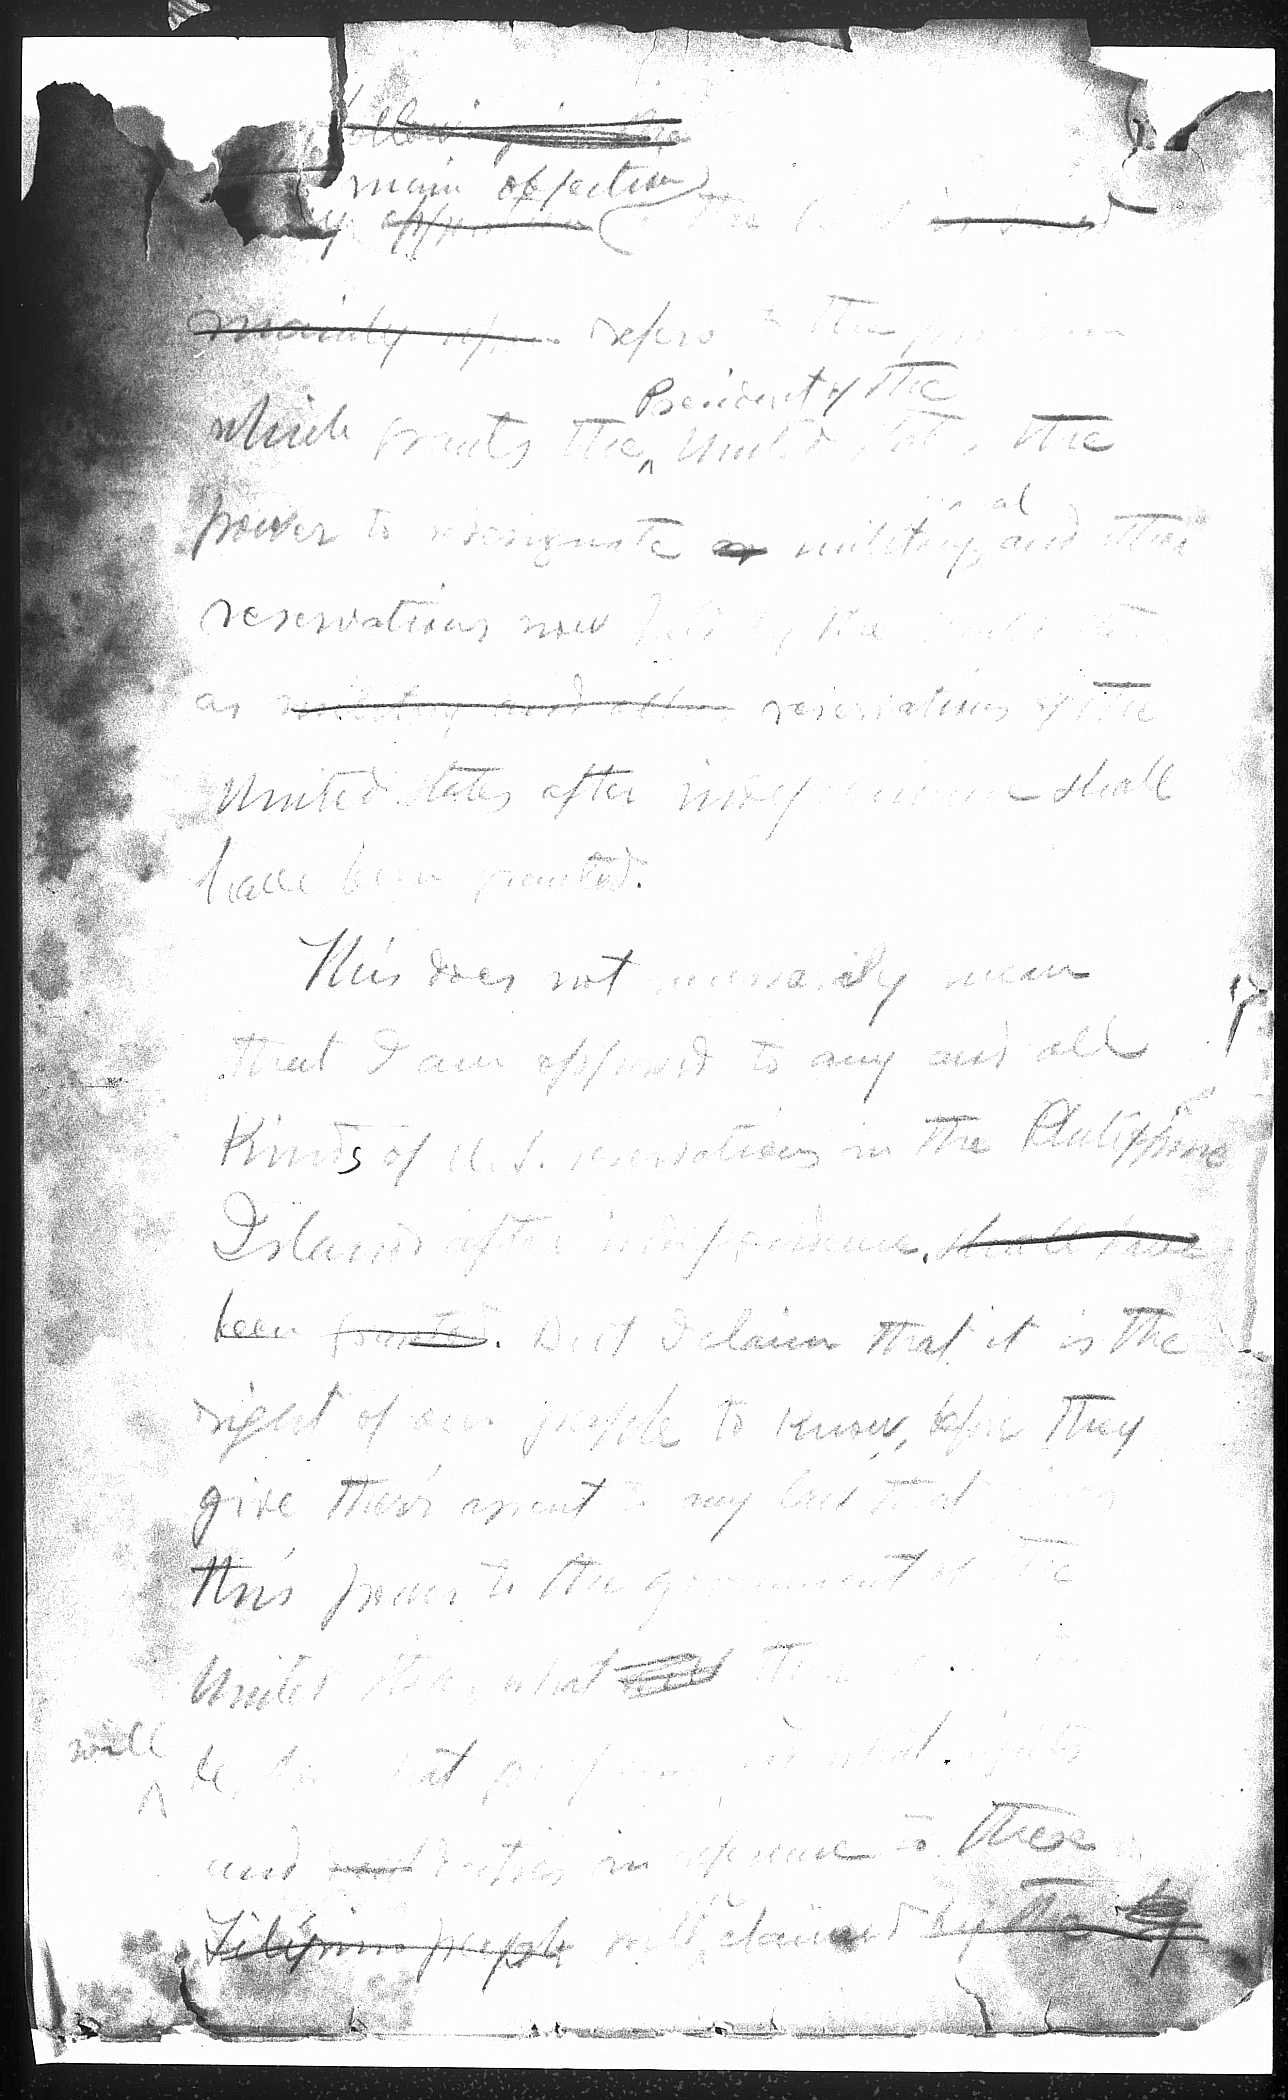 following is the
main objection
my opposition to the
mainly refers refers to the
President of the
which grants the United States the
power to designate as military and other
reservations now held by the United States
as military and other reservations of the
United States after independence shall
have been granted.
This does not necessarily mean
that I am opposed to any and all
Kinds of U.S. reservations in the Philippine
Islands after independence. shall have
been granted. But I claim that it is the
right of our people to know, before they
give their assent to any bill that gives
this power to the government of the
United States, what
will
be, for what purpose, and what rights
and duties in reference to these
Filipino people will claimed by the